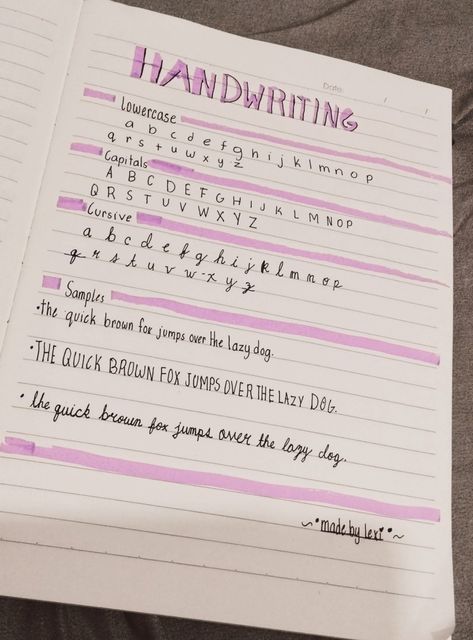 HANDWRITING
Date: / /
Lowercase
a b c d e f g h i j k l m n o p
q r s t u w x y z
Capitals
A B C D E F G H I J K L M N O P
Q R S T U V W X Y Z
Cursive
a b c d e f g h i j k l m n o p
q r s t u v w x y z
Samples
•the quick brown fox jumps over the lazy dog.
•THE QUICK BROWN FOX JUMPS OVER THE LAZY DOG.
• the quick brown fox jumps over the lazy dog.
~•made by lexi•~